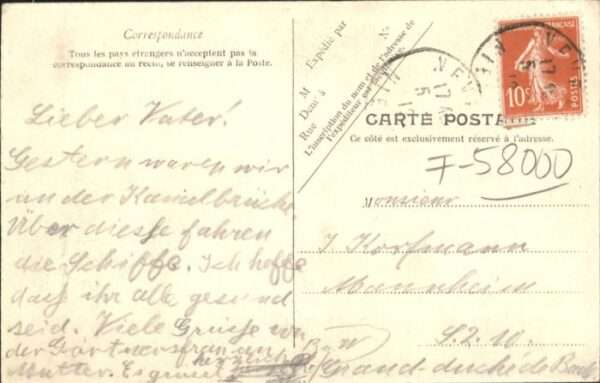 Correspondance
Tous les pays étrangers n'acceptent pas la
correspondance au recto, se renseigner à la Poste.
Lieber Vater!
Gestern waren wir
an der Kanalbrücke.
Über diesse fahren
die Schiffe. Ich hoffe
dass ihr alle gesund
seid. Viele Grüsse von
der Gärtnersfrau an
Mutter. Es
N°
Expédié par
M
Demt à
Rue
L'inscription du nom et de l'adresse de
l'expéditeur
FRANÇAISE
10c
POSTES
NEV
17
5
CARTE POSTALE
Ce côté est exclusivement réservé à l'adresse.
F-58000
Monsieur
J Korfmann
Mannheim
S. 2. 10.
Grand-duché de Bade